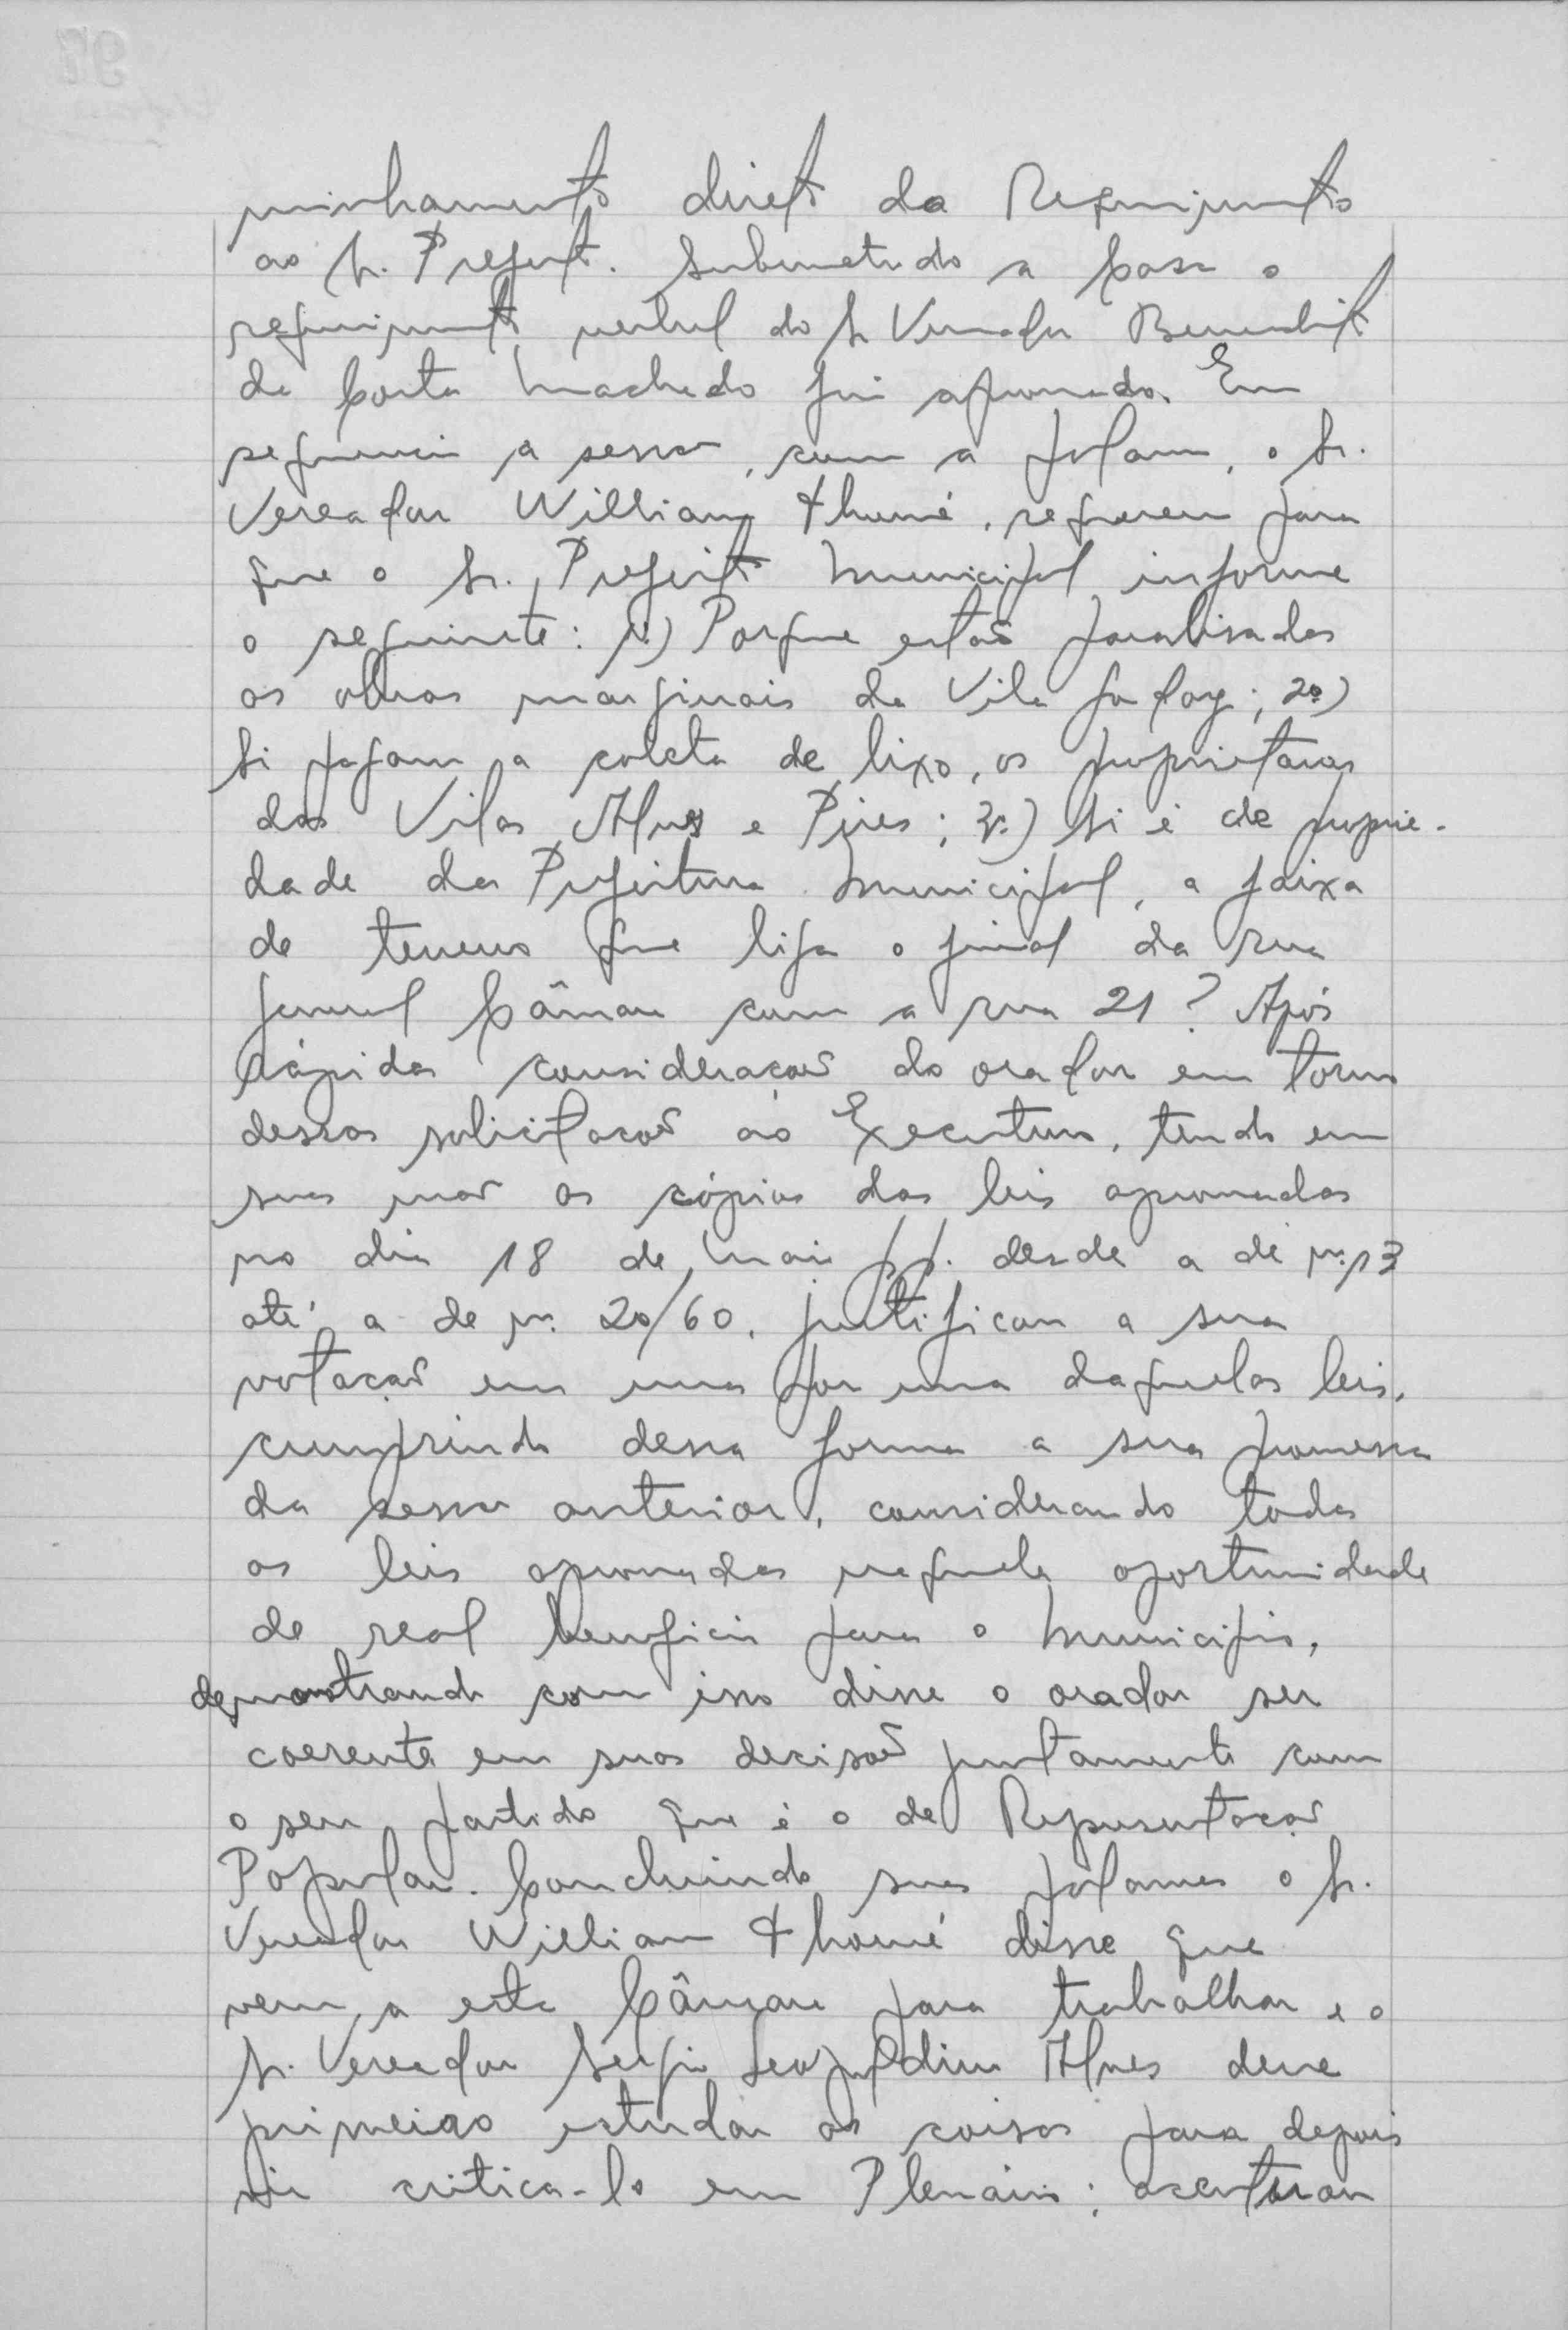 minhamento direto da Requerimento
ao Sr. Prefeito. Submetido a Casa o
requerimento verbal do Sr Vereador Benedito
da Costa Machado foi aprovado. Em
sequencia a sessão, com a palavra, o Sr.
Vereador William Thomé, requereu para
que o Sr. Prefeito Municipal informe
o seguinte: 1º) Porque estão paralisadas
as obras marginais da Vila ; 2º)
Si pagam a coleta de lixo, os proprietarios
das Vilas Alves e Pires; 3º) Si é de proprie-
dade da Prefeitura Municipal, a faixa
de terreno que liga o final da rua
General Câmara com a rua 21? Após
rápidas considerações do orador em torno
dessas solicitações ao Executivo, tendo em
suas mãos as cópias das leis aprovadas
no dia 18 de Maio p.p. desde a de nº 13
até a de nº 20/60, justificou a sua
votação em uma por uma daquelas leis,
cumprindo dessa forma a sua promessa
da sessão anterior, considerando todas
as leis aprovadas naquela oportunidade
de real beneficio para o Municipio,
demonstrando com isso disse o orador ser
coerente em suas decisões juntamente com
o seu partido que é o de Representação
Popular. Concluindo suas palavras o Sr.
Vereador William Thomé disse que
vem a esta Câmara para trabalhar e o
Sr. Vereador Sergio Leopoldino Alves deve
primeiro estudar as coisas para depois
vir critica-lo em Plenário;